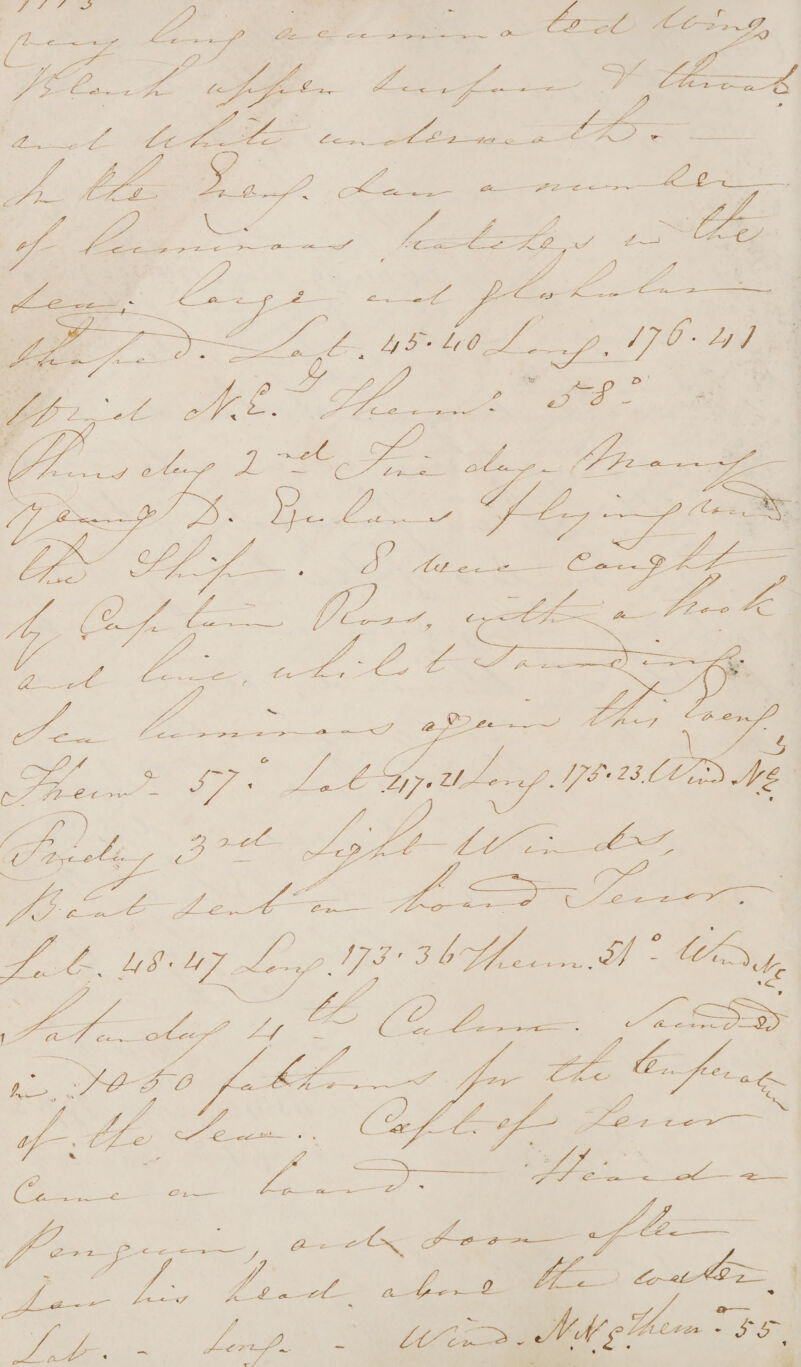 very long acuminated wings
Black upper surface & throat
and white underneath. —
In the Eveng. saw a number
of luminous patches in the
sea; large and globular
shaped. Lat. 45.40 Long. 176.41
Wind N.E.y Therm. 58°
Thursday 2nd Fine day. Many
young D. Exulans flying round
the Ship. 8 were caught
by Captain Ross, with a hook
and line, whilst sounding.
Sea luminous again this Eveng.
Therm. 57°. Lat 47.21 Long. 175.23. Wind N.E.y
Friday 3rd Light Winds,
Boat sent on board Terror.
Lat. 48.47 Long. 173.36 Therm. 51° Wind N.E.
Saturday 4th Calm. Sounded
in 1050 fathoms for the temperature
of the Sea. Capt. of Terror
Came on board. Heard a
Penguin, and soon after
saw his head above the water.
Lat. - Long. - Wind. N.N.E. Therm. 55.